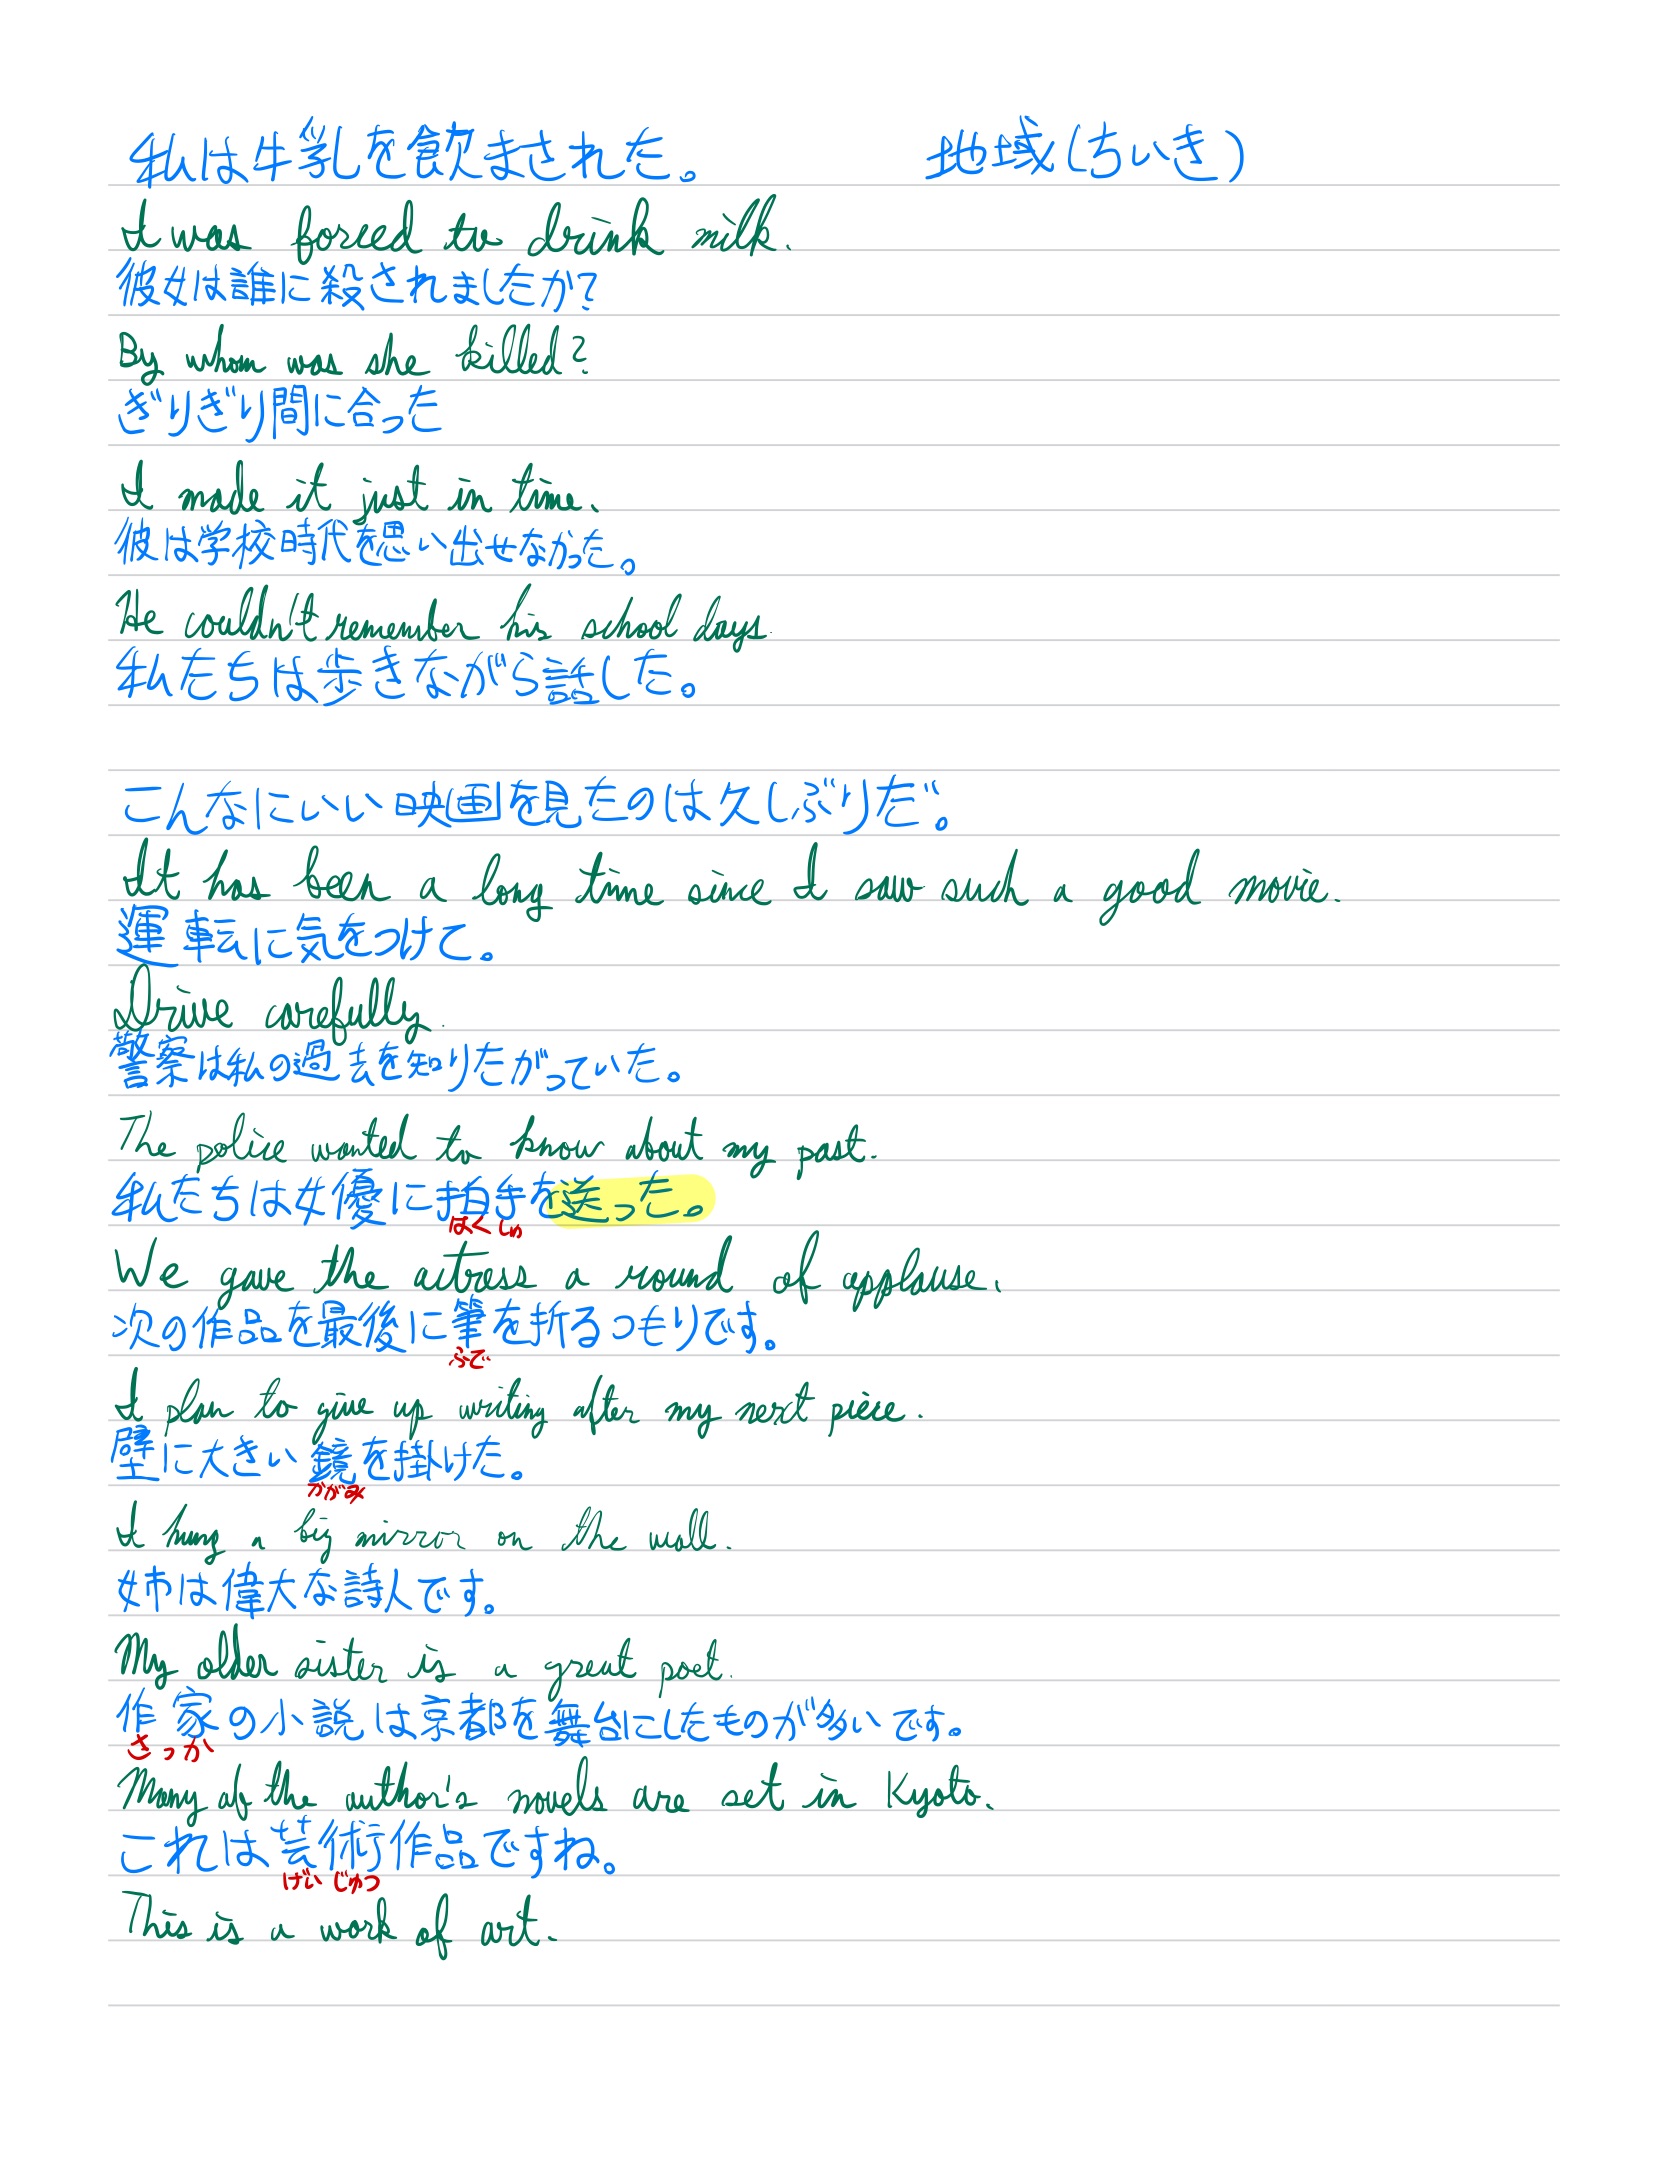 私は牛乳を飲まされた。 地域(ちいき)
I was forced to drink milk.
彼女は誰に殺されましたか?
By whom was she killed?
ぎりぎり間に合った
I made it just in time.
彼は学校時代を思い出せなかった。
He couldn't remember his school days.
私たちは歩きながら話した。
こんなにいい映画を見たのは久しぶりだ。
It has been a long time since I saw such a good movie.
運転に気をつけて。
Drive carefully.
警察は私の過去を知りたがっていた。
The police wanted to know about my past.
私たちは女優に拍手を送った。
はくしゅ
We gave the actress a round of applause.
次の作品を最後に筆を折るつもりです。
ふで
I plan to give up writing after my next piece.
壁に大きい鏡を掛けた。
かがみ
I hung a big mirror on the wall.
姉は偉大な詩人です。
My older sister is a great poet.
作家の小説は京都を舞台にしたものが多いです。
さっか
Many of the author's novels are set in Kyoto.
これは芸術作品ですね。
げいじゅつ
This is a work of art.